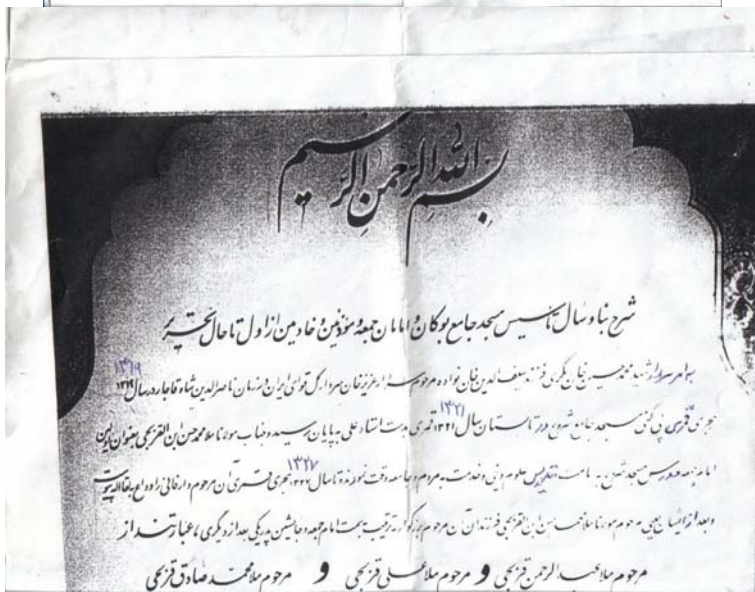 بسم الله الرحمن الرحیم
شرح بنا و سال تاسیس مسجد جامع بوکان و امامان جمعه و مؤذنین و خادمین از اول تا حال تحریر
بامر سردار شهید محمد حسین خان مکری فرزند سیف الدین خان نواده مرحوم سردار عزیز خان سردار کل قوای ایران در زمان ناصر الدین شاه قاجار در سال ۱۳۱۹
هجری قمری پی کنی مسجد جامع شروع و در تابستان سال ۱۳۲۱ قمری بدست استاد علی به پایان رسید و جناب مولانا ملا محمد حسن ابن القزلجی بعنوان اولین
امام جمعه و مدرس مسجد شروع به امامت و تدریس علوم دینی و خدمت به مردم و جامعه وقت نموده تا سال ۱۳۲۷ هجری قمری آن مرحوم دار فانی را وداع به لقاالله پیوست
و بعد از ایشان یعنی مرحوم مولانا ملا محمد حسن ابن القزلجی فرزندان آن مرحوم بزرگوار به ترتیب بسمت امام جمعه و جانشین پدر یکی بعد از دیگری عبارتند از
مرحوم ملا عبدالرحمن قزلجی و مرحوم ملا علی قزلجی و مرحوم ملا محمد صادق قزلجی